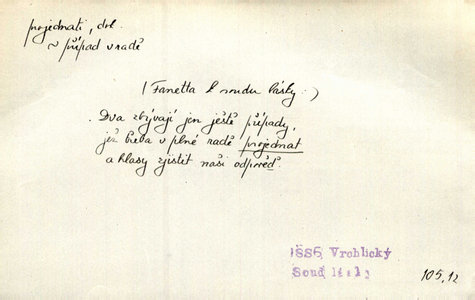 projednati, dok.
~ případ v radě
(Fanetta k soudu lásky:)
Dva zbývají jen ještě případy,
jež třeba v plné radě projednat
a hlasy zjistit naši odpověď.
1886, Vrchlický
Soud lásky
105,12